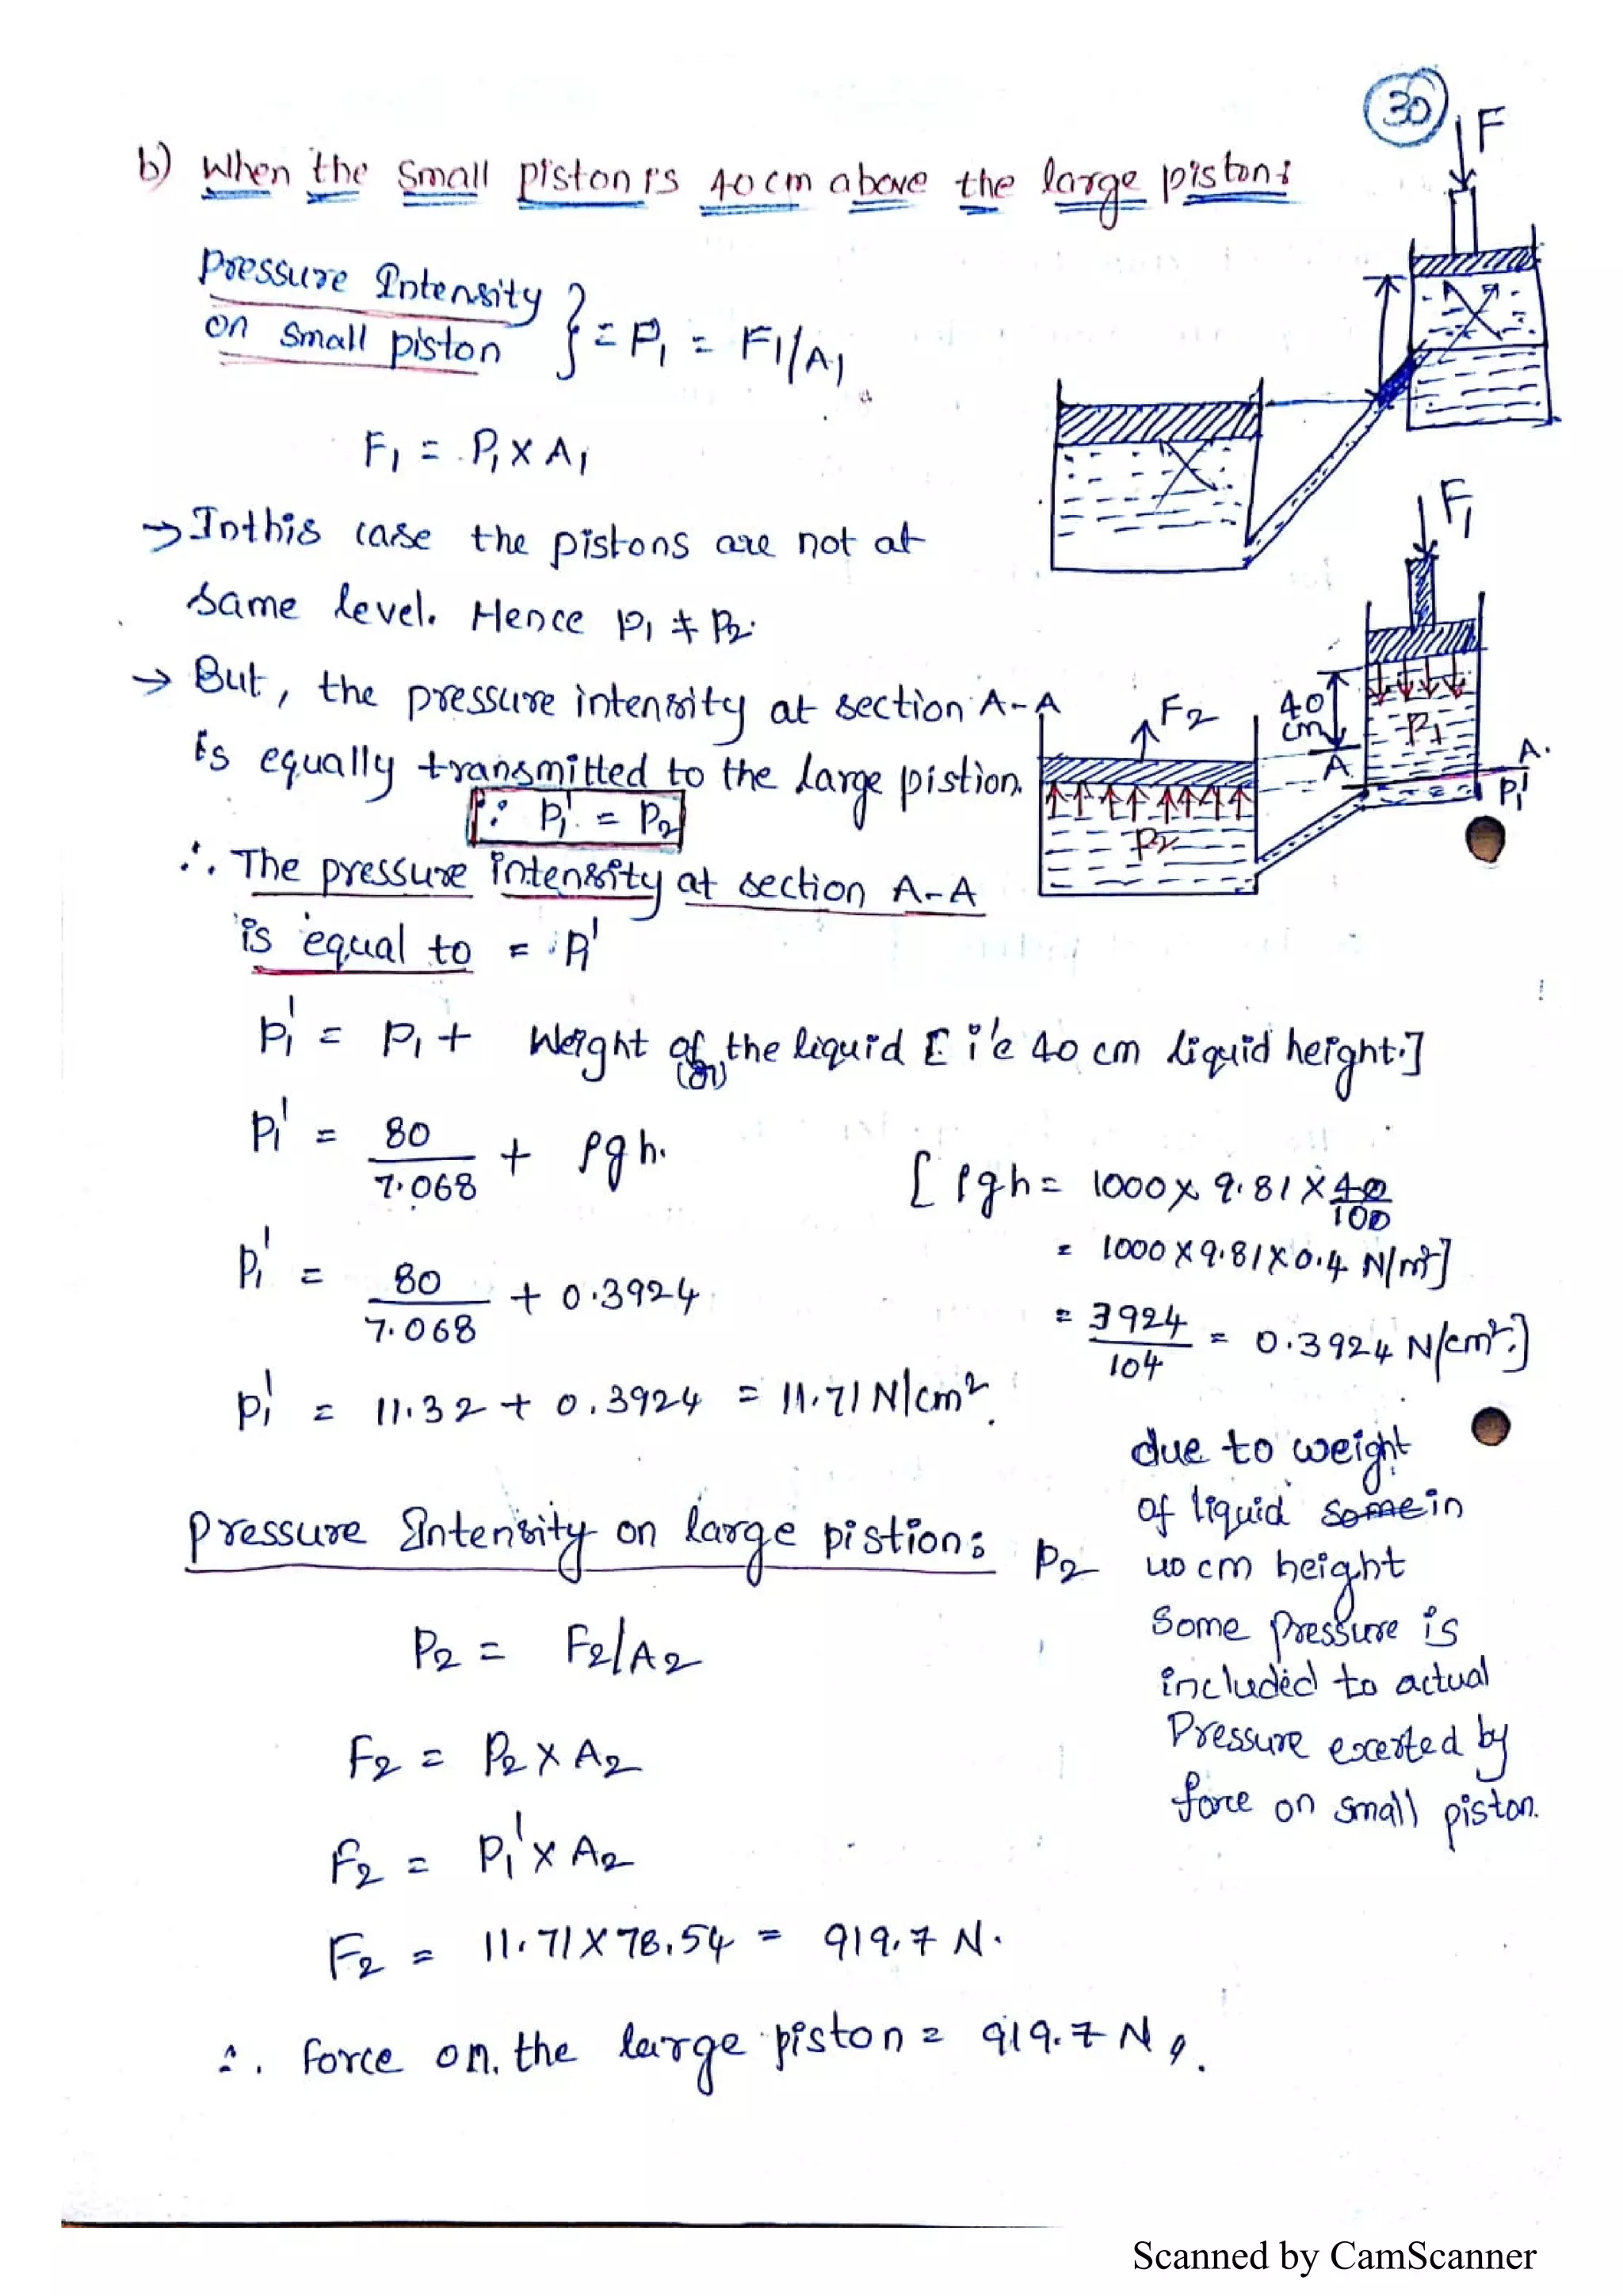 30
b) When the small piston is 40 cm above the large piston:
F
Pressure Intensity
on small piston } = P₁ = F₁/A₁
F₁ = P₁ x A₁
→ Inthis case the pistons are not at
same level. Hence P₁ ≠ P₂.
F₁
→ But, the pressure intensity at section A-A
is equally transmitted to the large pistion.
F₂
40
cm
P₁
A
A.
P₁'
P₂
∵ P₁' = P₂
∴ The pressure intensity at section A-A
is equal to = P₁'
P₁' = P₁ + Weight of the liquid [ i'e 40 cm liquid height.]
(or)
P₁' = 80/7.068 + ρgh.
[ ρgh = 1000 x 9.81 x 40/100
= 1000 x 9.81 x 0.4 N/m²]
P₁' = 80/7.068 + 0.3924
= 3924/104 = 0.3924 N/cm².]
P₁' = 11.32 + 0.3924 = 11.71 N/cm².
due to weight
of liquid some in
40 cm height
Some Pressure is
included to actual
Pressure exerted by
force on small piston.
Pressure Intensity on large pistion: P₂
P₂ = F₂/A₂
F₂ = P₂ x A₂
F₂ = P₁' x A₂
F₂ = 11.71 x 78.54 = 919.7 N.
∴ force on the large piston = 919.7 N.
Scanned by CamScanner